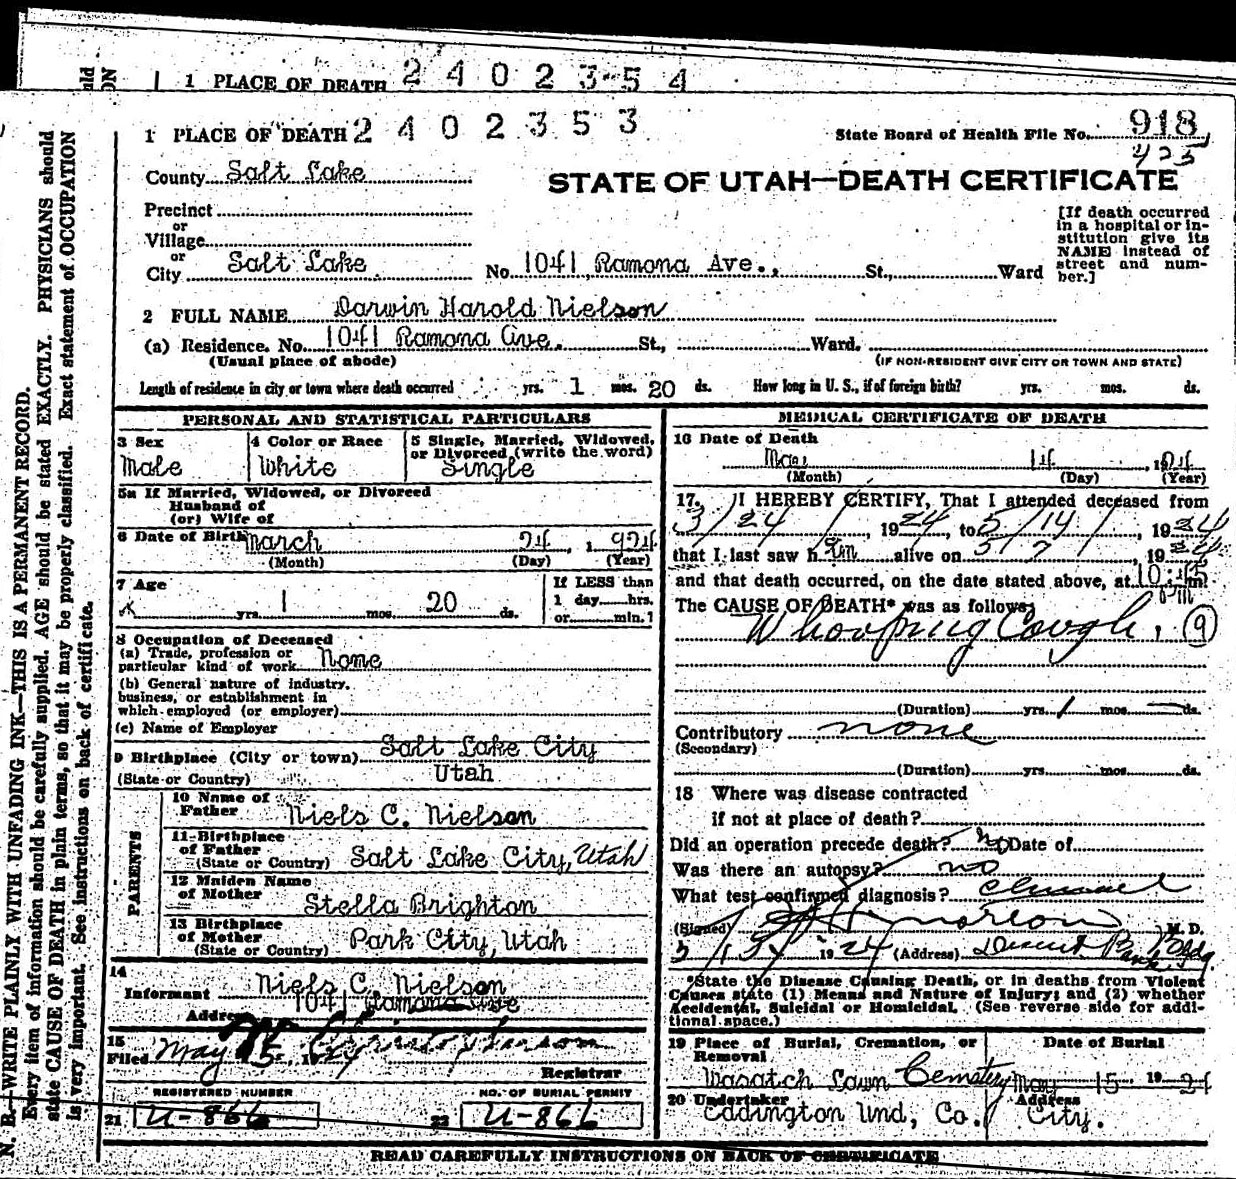 1 PLACE OF DEATH 2 4 0 2 3 5 4
1 PLACE OF DEATH 2 4 0 2 3 5 3
State Board of Health File No. 918
425
County Salt Lake
STATE OF UTAH—DEATH CERTIFICATE
Precinct
or
Village
or
City Salt Lake No. 1041 Ramona Ave., St., Ward
[If death occurred
in a hospital or in-
stitution give its
NAME instead of
street and num-
ber.]
2 FULL NAME Darwin Harold Nielson
(a) Residence. No. 1041 Ramona Ave. St., Ward.
(Usual place of abode) (IF NON-RESIDENT GIVE CITY OR TOWN AND STATE)
Length of residence in city or town where death occurred yrs. 1 mos. 20 ds. How long in U. S., if of foreign birth? yrs. mos. ds.
PERSONAL AND STATISTICAL PARTICULARS
3 Sex 4 Color or Race 5 Single, Married, Widowed,
or Divorced (write the word)
Male White Single
5a If Married, Widowed, or Divorced
Husband of
(or) Wife of
6 Date of Birth March 24, 1924
(Month) (Day) (Year)
7 Age If LESS than
1 day hrs.
or min.?
x yrs. 1 mos. 20 ds.
8 Occupation of Deceased
(a) Trade, profession or
particular kind of work None
(b) General nature of industry,
business, or establishment in
which employed (or employer)
(c) Name of Employer
9 Birthplace (City or town) Salt Lake City
(State or Country) Utah
PARENTS
10 Name of
Father Niels C. Nielson
11 Birthplace
of Father
(State or Country) Salt Lake City, Utah
12 Maiden Name
of Mother Stella Brighton
13 Birthplace
of Mother
(State or Country) Park City, Utah
14
Informant Niels C. Nielson
Address 1041 Ramona Ave
15
Filed May 15, 1924
Registrar
REGISTERED NUMBER NO. OF BURIAL PERMIT
21 U-866 22 U-866
MEDICAL CERTIFICATE OF DEATH
16 Date of Death
May 14, 1924
(Month) (Day) (Year)
17. I HEREBY CERTIFY, That I attended deceased from
3/24/ 1924, to 5/14/, 1924
that I last saw him alive on 5/7/, 1924
and that death occurred, on the date stated above, at 10:45 m.
Pm
The CAUSE OF DEATH* was as follows:
Whooping Cough. 9
(Duration) yrs. 1 mos. — ds.
Contributory none
(Secondary)
(Duration) yrs. mos. ds.
18 Where was disease contracted
if not at place of death?
Did an operation precede death? No Date of
Was there an autopsy? no
What test confirmed diagnosis?
(Signed) M. D.
1924 (Address) Deseret Bank Bldg.
*State the Disease Causing Death, or in deaths from Violent
Causes state (1) Means and Nature of Injury; and (2) whether
Accidental, Suicidal or Homicidal. (See reverse side for addi-
tional space.)
19 Place of Burial, Cremation, or Date of Burial
Removal
Wasatch Lawn Cemetery May 15, 1924
20 Undertaker Address
Eddington Und, Co. City.
READ CAREFULLY INSTRUCTIONS ON BACK OF CERTIFICATE
N. B.—WRITE PLAINLY WITH UNFADING INK—THIS IS A PERMANENT RECORD.
Every item of information should be carefully supplied. AGE should be stated EXACTLY. PHYSICIANS should
state CAUSE OF DEATH in plain terms, so that it may be properly classified. Exact statement of OCCUPATION
is very important. See instructions on back of certificate.